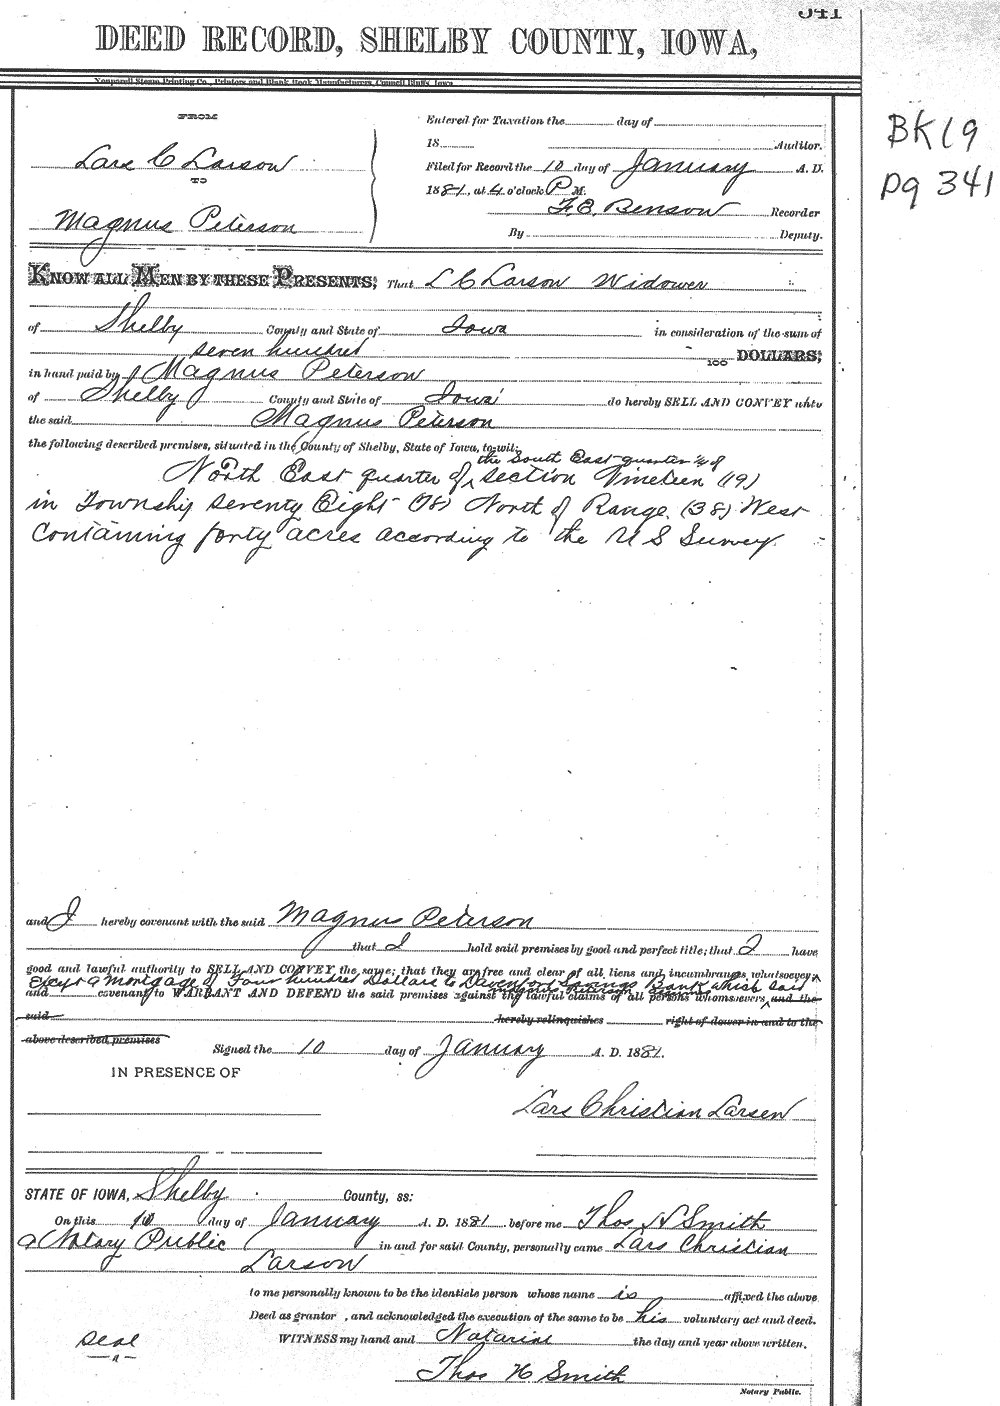 341
DEED RECORD, SHELBY COUNTY, IOWA,
Nonpareil Steam Printing Co., Printers and Blank Book Manufacturers, Council Bluffs, Iowa
BK 19
pg 341
FROM
Lars C Larson
TO
Magnus Peterson
Entered for Taxation the day of
18 Auditor.
Filed for Record the 10 day of January A. D.
1881, at 4 o'clock P M.
F. B. Benson Recorder
By Deputy.
KNOW ALL MEN BY THESE PRESENTS; That L C Larson Widower
of Shelby County and State of Iowa in consideration of the sum of
seven hundred 100 DOLLARS;
in hand paid by Magnus Peterson
of Shelby County and State of Iowa do hereby SELL AND CONVEY unto
the said Magnus Peterson
the following described premises, situated in the County of Shelby, State of Iowa, to-wit:
the South East quarter ¼ of
North East quarter of section Nineteen (19)
in Township seventy Eight (78) North of Range (38) West
Containing forty acres according to the U S Survey.
and I hereby covenant with the said Magnus Peterson
that I hold said premises by good and perfect title; that I have
good and lawful authority to SELL AND CONVEY the same; that they are free and clear of all liens and incumbrances whatsoever
except a mortgage of Four hundred Dollars to Davenport Savings Bank which said
Magnus Peterson assumes
and covenant to WARRANT AND DEFEND the said premises against the lawful claims of all persons whomsoever, and the
said hereby relinquishes right of dower in and to the
above described premises
Signed the 10 day of January A. D. 1881.
IN PRESENCE OF
Lars Christian Larsen
STATE OF IOWA, Shelby County, ss:
On this 10 day of January A. D. 1881 before me Thos H Smith
a Notary Public in and for said County, personally came Lars Christian
Larson
to me personally known to be the identicle person whose name is affixed the above
Deed as grantor , and acknowledged the execution of the same to be his voluntary act and deed.
seal
WITNESS my hand and Notarial the day and year above written.
Thos H Smith
Notary Public.